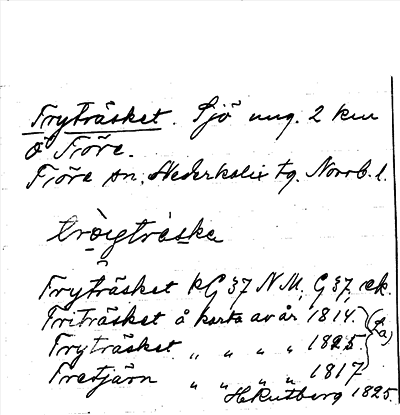 Tryträsket. Sjö ung. 2 km
Ö Töre.
Töre sn. Nederkalix tg. Norrb. l.
Tryträsket KG 37 N M, G 37, ek.
Triträsket å karta av år 1814.
Tryträsket " " " " 1825
Tretjärn " " " " 1817
1825.